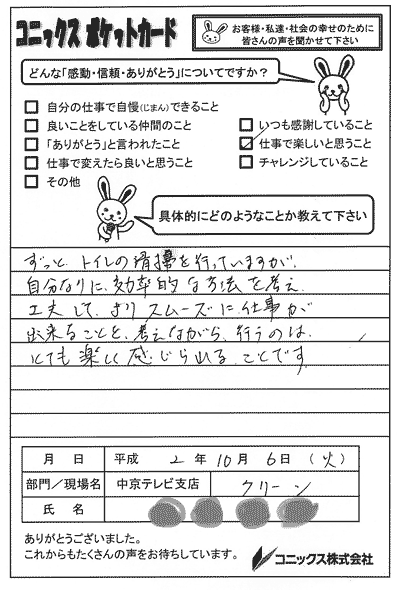 コニックス ポケットカード
お客様・私達・社会の幸せのために
皆さんの声を聞かせて下さい
どんな「感動・信頼・ありがとう」についてですか?
自分の仕事で自慢(じまん)できること
良いことをしている仲間のこと
「ありがとう」と言われたこと
仕事で変えたら良いと思うこと
その他
いつも感謝していること
仕事で楽しいと思うこと
チャレンジしていること
具体的にどのようなことか教えて下さい
ずっと、トイレの清掃を行っていますが、
自分なりに、効率的な方法を考え
工夫して、よりスムーズに仕事が
出来ることを、考えながら、行うのは、
とても楽しく感じられることです。
月 日 平成 2 年 10 月 6 日 (火)
部門/現場名 中京テレビ支店 クリーン
氏 名
ありがとうございました。
これからもたくさんの声をお待ちしています。
コニックス株式会社